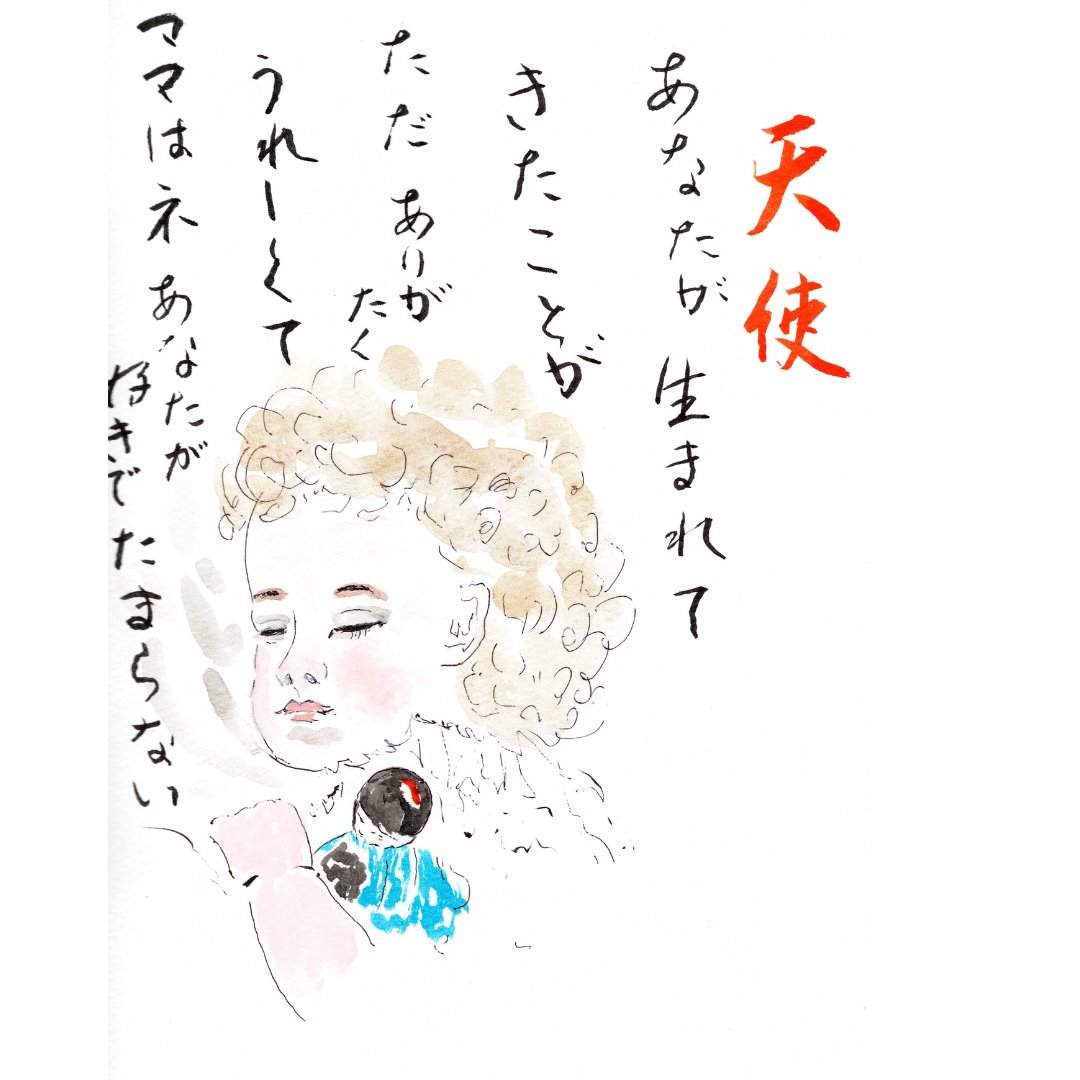 天使
あなたが 生まれて
きたことが
ただ ありが
たく
うれしくて
ママはネ あなたが
好きでたまらない